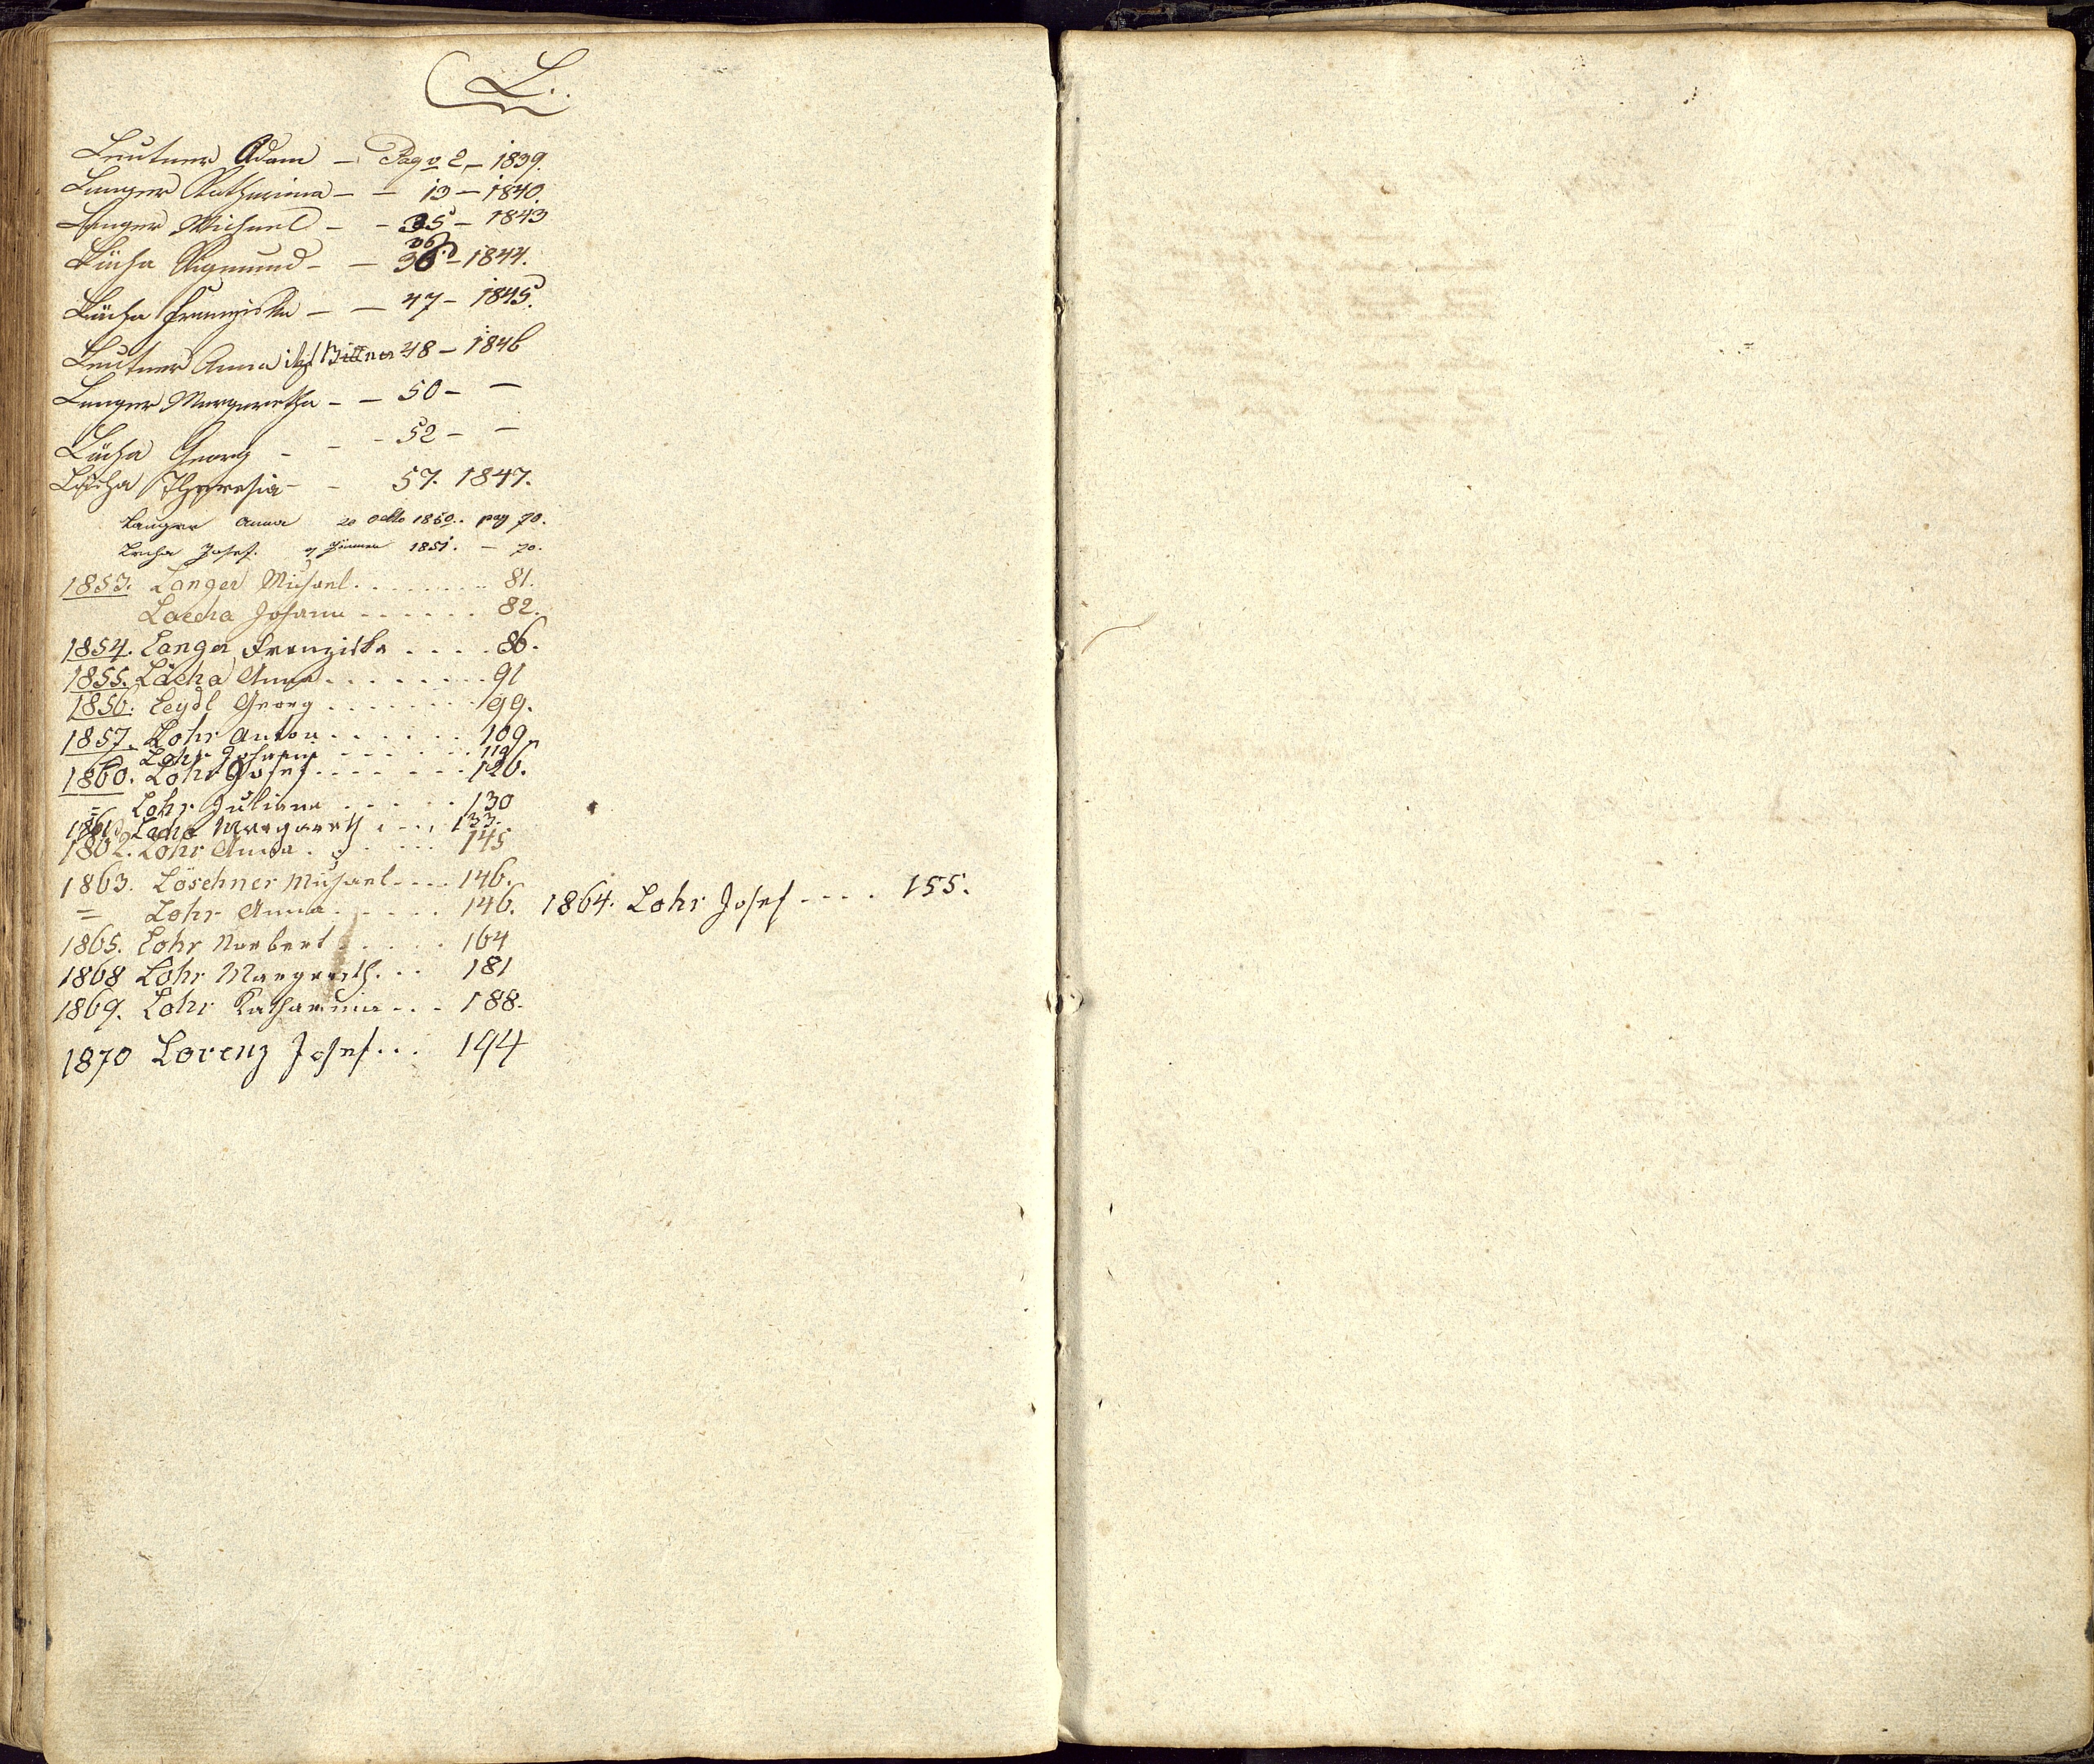 L.
Leutner Adam – Pag 2 – 1839.
Langer Katharina – – 13 – 1840.
Langer Michael – – 35 – 1843
Sigmund – – 36 – 1844.
Franziska – – 47 – 1845.
Leutner Anna Bittner 48 – 1846
Langer Margaretha – – 50 – –
Georg – – – 52 – –
Theresia – – 57. 1847.
Langer Anna 20 1850. pag 70.
Josef. 1851. – 70.
1853. Langer Michael . . . . . . . . 81.
Johann . . . . . . 82.
1854. Langer Franziska . . . . 86.
1855. Lacha Anna . . . . . . . . 91
1856. Leydl Georg . . . . . . . 99.
1857. Lohr Anton . . . . . . 109.
Lohr Johann . . . . . . 119
1860. Lohr Josef . . . . . . . 126.
= Lohr Juliana . . . . . 130
1861. Lacha Margareth . . . . 133.
1862. Lohr Anna . . . . . . 145
1863. Löschner Michael . . . . 146.
= Lohr Anna . . . . . 146. 1864. Lohr Josef . . . . 155.
1865. Lohr Norbert . . . . . 164
1868 Lohr Margareth . . . 181
1869. Lohr Katharina . . . 188.
1870 Lorenz Josef . . . 194